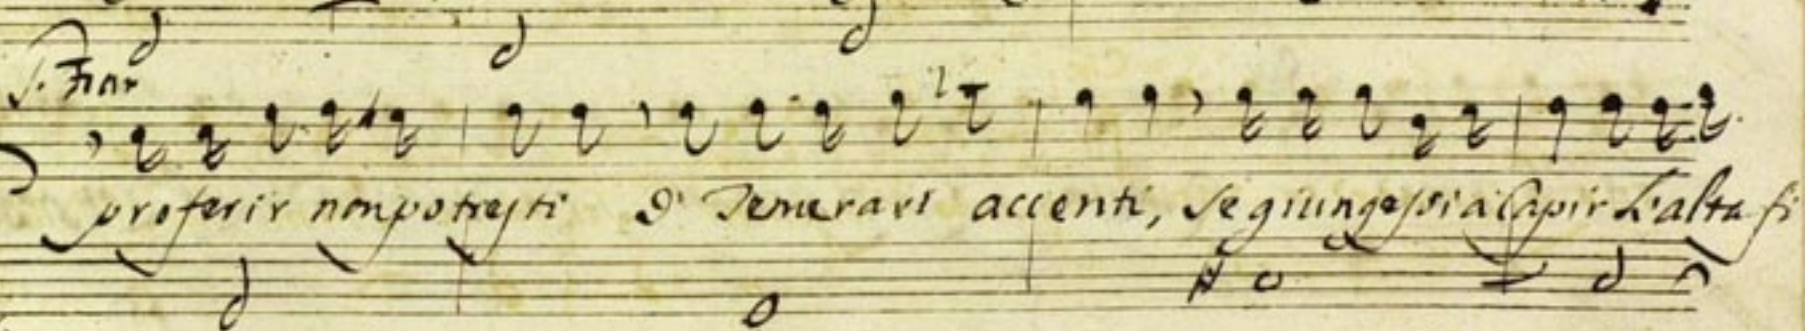 S. Fior
proferir non potresti D' Temerari accenti, Se giungessi a Capir L'alta fi